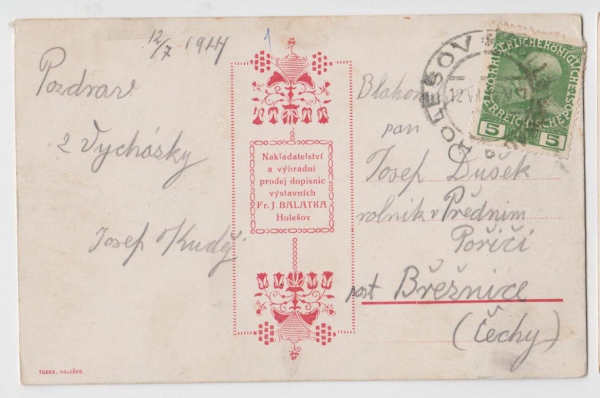 12/7 1914
1
Pozdrav
z Vycházky
Josef Kuděj
Nakladatelství
a výhradní
prodej dopisnic
výstavních
Fr. J. BALATKA
Holešov
HOLEŠOV
12 VII
KAISERLICHE KÖNIGLICHE
ÖSTERREICHISCHE POST
5 5
pan
Josef Dušek
rolník v Předním
Poříčí
post Břežnice
(Čechy)
TUSEK, HOLEŠOV.